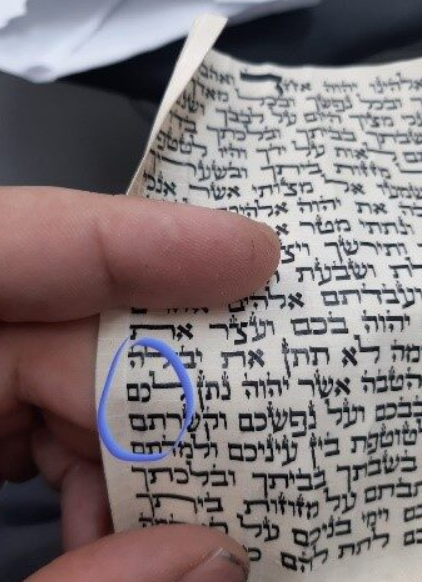 אלהינו יהוה אחד ואהב
ובכל נפשך ובכל מאדך
מצוך היום על לבבך ושננ
שבתך בביתך ובלכתך בד
לאות על ידך והיו לטטפ
ביתך ובשערי
תשמעו אל מצותי אשר אנכ
את יהוה אלהי
ונתתי מטר א
ותירשך ויצ
ושבעת
ועבדתם אלהים
יהוה בכם ועצר את
מה לא תתן את יבולה
הטבה אשר יהוה נתן לכם
בבכם ועל נפשכם וקשרתם
לטוטפת בין עיניכם ולמדתם
בשבתך בביתך ובלכתך
תבתם על מזוזות ביתך
ם וימי בניכם על
ם לתת להם כ